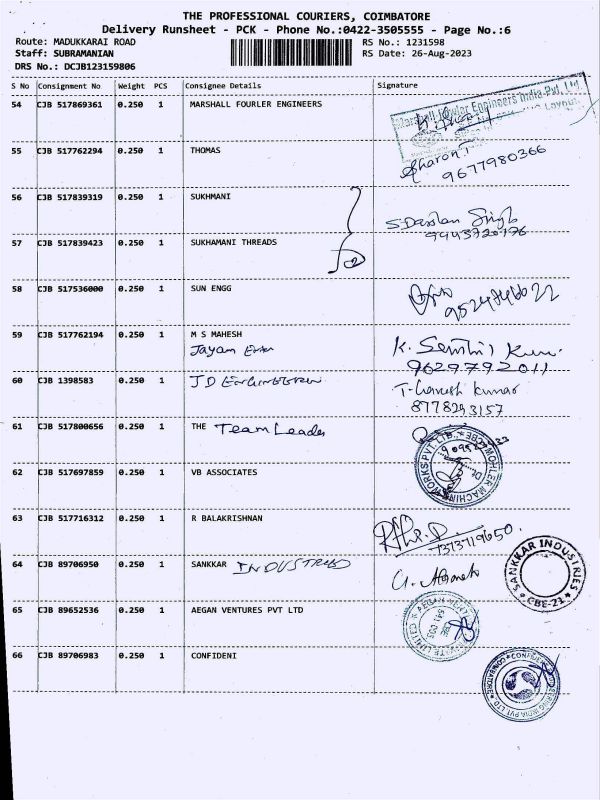 THE PROFESSIONAL COURIERS, COIMBATORE
Delivery Runsheet - PCK - Phone No.:0422-3505555 - Page No.:6
Route: MADUKKARAI ROAD RS No.: 1231598
Staff: SUBRAMANIAN RS Date: 26-Aug-2023
DRS No.: DCJB123159806
S No Consignment No Weight PCS Consignee Details Signature
54 CJB 517869361 0.250 1 MARSHALL FOURLER ENGINEERS
Engineers India Pvt. Ltd.
55 CJB 517762294 0.250 1 THOMAS Sharon T
9677980366
56 CJB 517839319 0.250 1 SUKHMANI
S Darshan Singh
57 CJB 517839423 0.250 1 SUKHAMANI THREADS 9443920176
58 CJB 517536000 0.250 1 SUN ENGG
59 CJB 517762194 0.250 1 M S MAHESH K. Senthil Kumar
Jayam 9629792011
60 CJB 1398583 0.250 1 JD Engineering T-Harish kumar
8778293157
61 CJB 517800656 0.250 1 THE Team Leader
62 CJB 517697859 0.250 1 VB ASSOCIATES
MACHINE WORKS PVT. LTD.
63 CJB 517716312 0.250 1 R BALAKRISHNAN
7373719650
64 CJB 89706950 0.250 1 SANKKAR INDUSTRIES
SANKKAR INDUSTRIES
CBE-21
65 CJB 89652536 0.250 1 AEGAN VENTURES PVT LTD
66 CJB 89706983 0.250 1 CONFIDENI